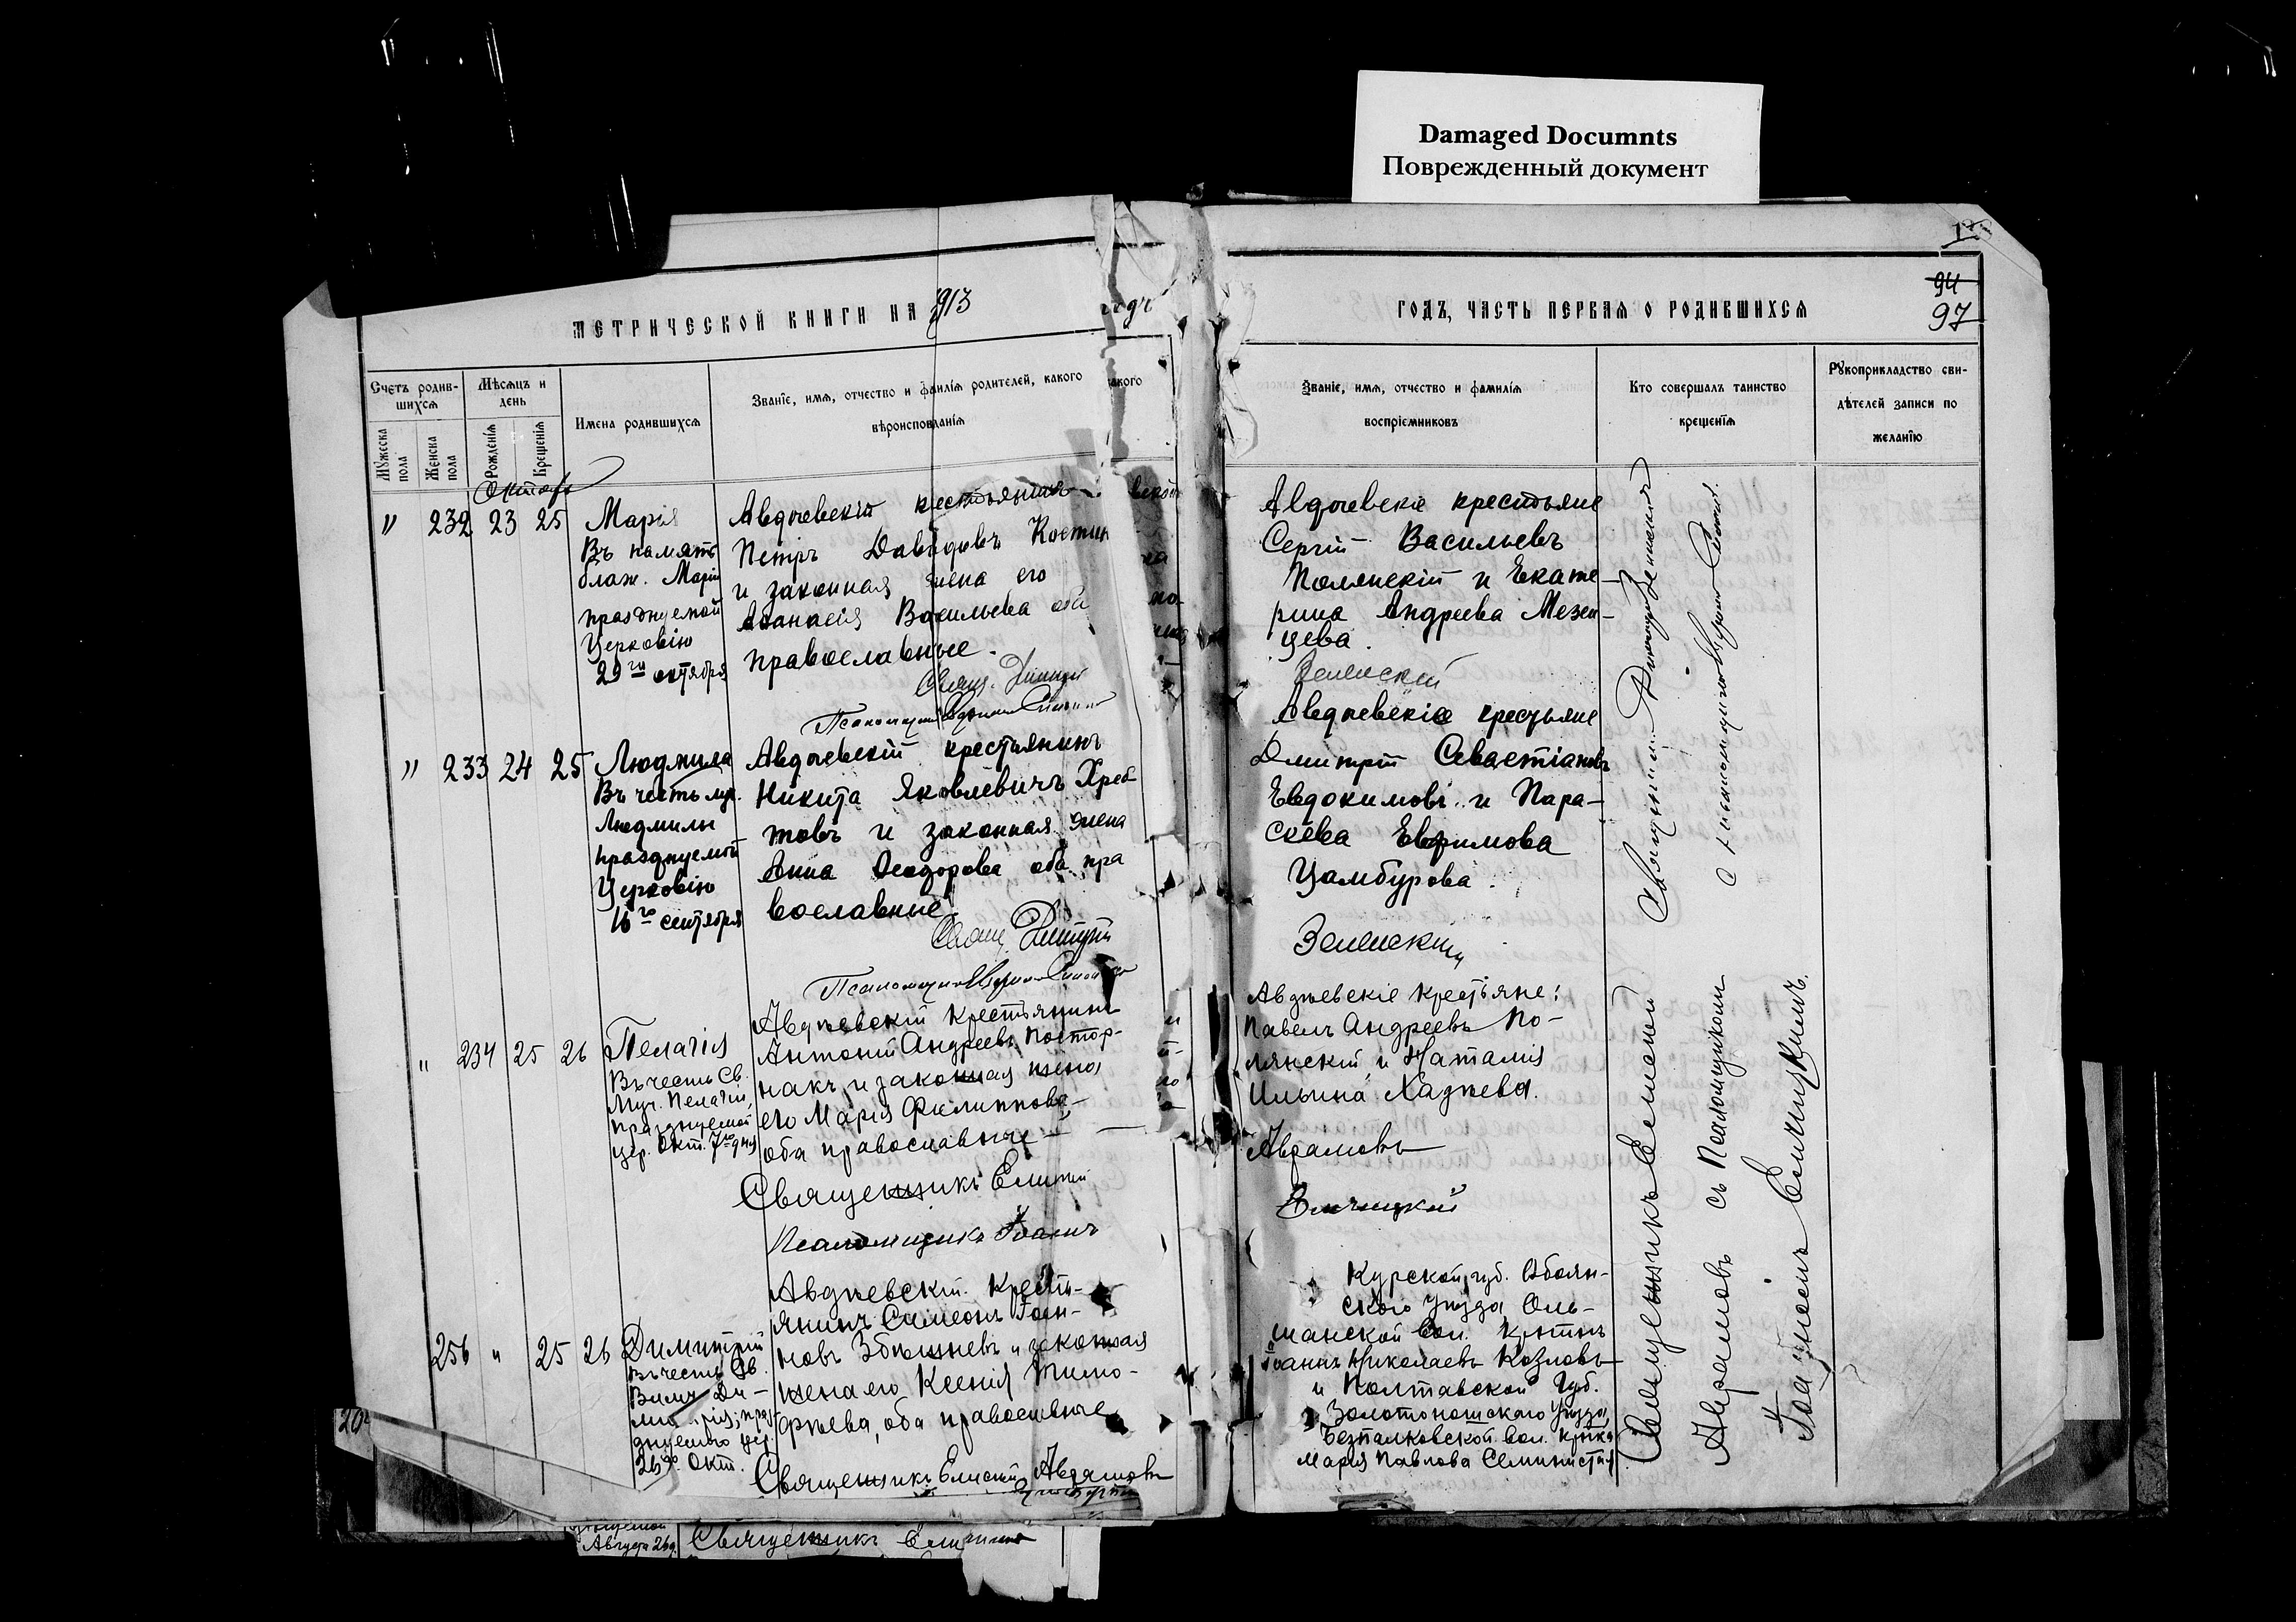 Damaged Documnts
Поврежденный документ
94
97
МЕТРИЧЕСКОЙ КНИГИ НА 1913
годъ
ГОДЪ, ЧАСТЬ ПЕРВАЯ О РОДИВШИХСЯ
Счетъ родив-
шихся
Мужеска пола
Женска пола
Мѣсяцъ и
день
Рожденія
Крещенія
Имена родившихся
Званіе, имя, отчество и фамилія родителей, какого
вѣроисповѣданія
какого
Званіе, имя, отчество и фамилія
воспріемниковъ
Кто совершалъ таинство
крещенія
Рукоприкладство сви-
дѣтелей записи по
желанію
Октябр
" 232 23 25
Марія
Въ память
блаж. Маріи
празднуемой
Церковію
29го октября
Авдѣевскій крестьянинъ
Петръ Давидовъ Костин
и законная жена его
Аѳанасія Васильева оба
православные.
Свящ. Димитрій
Псаломщикъ
Авдѣевскіе крестьяне
Сергій Васильевъ
Полянскій и Екате-
рина Андреева Мезен-
цева.
Зеленскій
" 233 24 25
Людмила
Въ честь муч.
Людмилы
празднуемой
Церковію
16го сентября
Авдѣевскій крестьянинъ
Никита Яковлевичъ Хреб
товъ и законная жена
Анна Ѳеодорова оба пра
вославные.
Свящ. Димитрій
Псаломщикъ
Авдѣевскіе крестьяне
Димитрій Севастіановъ
Евдокимовъ и Пара-
скева Ефимова
Цамбурова.
Зеленскій
Священникъ Димитрій Зеленскій
съ псаломщикомъ
" 234 25 26
Пелагія
Въ честь Св.
Муч. Пелагіи,
празднуемой
цер. Окт. 7го дня
Авдѣевскій крестьянинъ
Антоній Андреевъ Постор-
накъ и законная жена
его Марія Филиппова,
оба православные
Священникъ Елисей
Псаломщикъ Іоаннъ
Авдѣевскіе крестьяне:
Павелъ Андреевъ По-
лянскій и Наталія
Ильина Хаджева.
Аврамовъ
256 " 25 26
Димитрій
Въ честь Св.
Велмч. Ди-
митрія, праз-
днуемаго цер.
26го Окт.
Авдѣевскій кресть-
янинъ Симеонъ Іоан-
новъ Збышневъ и законная
жена его Ксенія Тимо-
фѣева, оба православные
Священникъ Елисей Аврамовъ
Курской губ. Обоян-
скаго уѣзда Оль-
шанской вол. кр-нинъ
Іоаннъ Николаевъ Козловъ
и Полтавской губ.
Золотоношскаго уѣзда,
Безпалковской вол. кр-нка
Марія Павлова
Священникъ Елисей
Аврамовъ съ Псаломщикомъ
Іоанномъ
Августа 26 д.
Священникъ Елисей